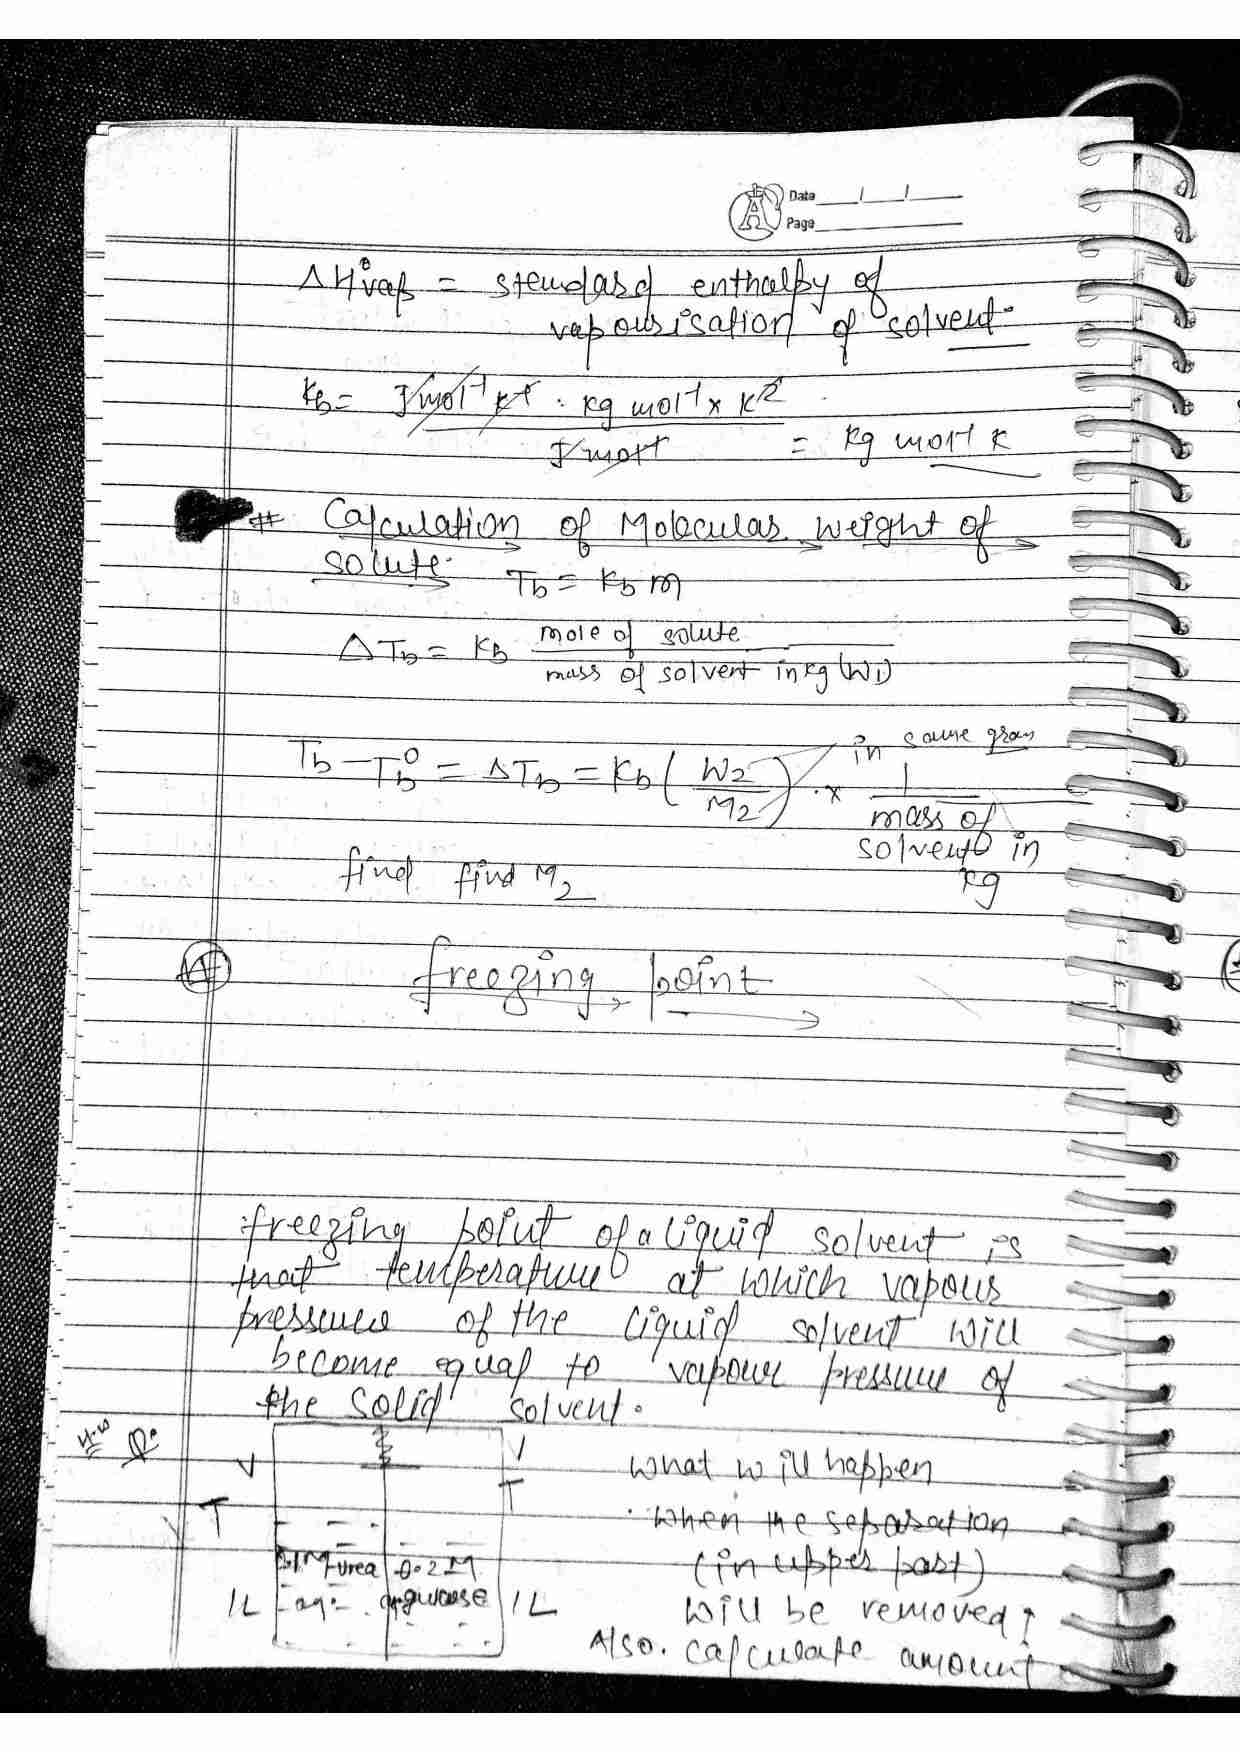 Date __/__/__
Page
ΔH°vap = standard enthalpy of
vapourisation of solvent.
Kb = J mol⁻¹ K⁻¹ · kg mol⁻¹ × K²
J mol⁻¹ = kg mol⁻¹ K
# Calculation of Molecular weight of
solute. Tb = Kb m
ΔTb = Kb mole of solute
mass of solvent in kg (W1)
Tb – Tb° = ΔTb = Kb (W2 / M2) · × 1 in same gram
mass of
solvent in
kg
find find M2
freezing point
freezing point of a liquid solvent is
that temperature at which vapour
pressure of the liquid solvent will
become equal to vapour pressure of
the solid solvent.
H.W Q. V V what will happen
T T when the separation
0.1M urea 0.2 M (in upper part)
1L aq. aq glucose 1L will be removed,
Also. calculate amount